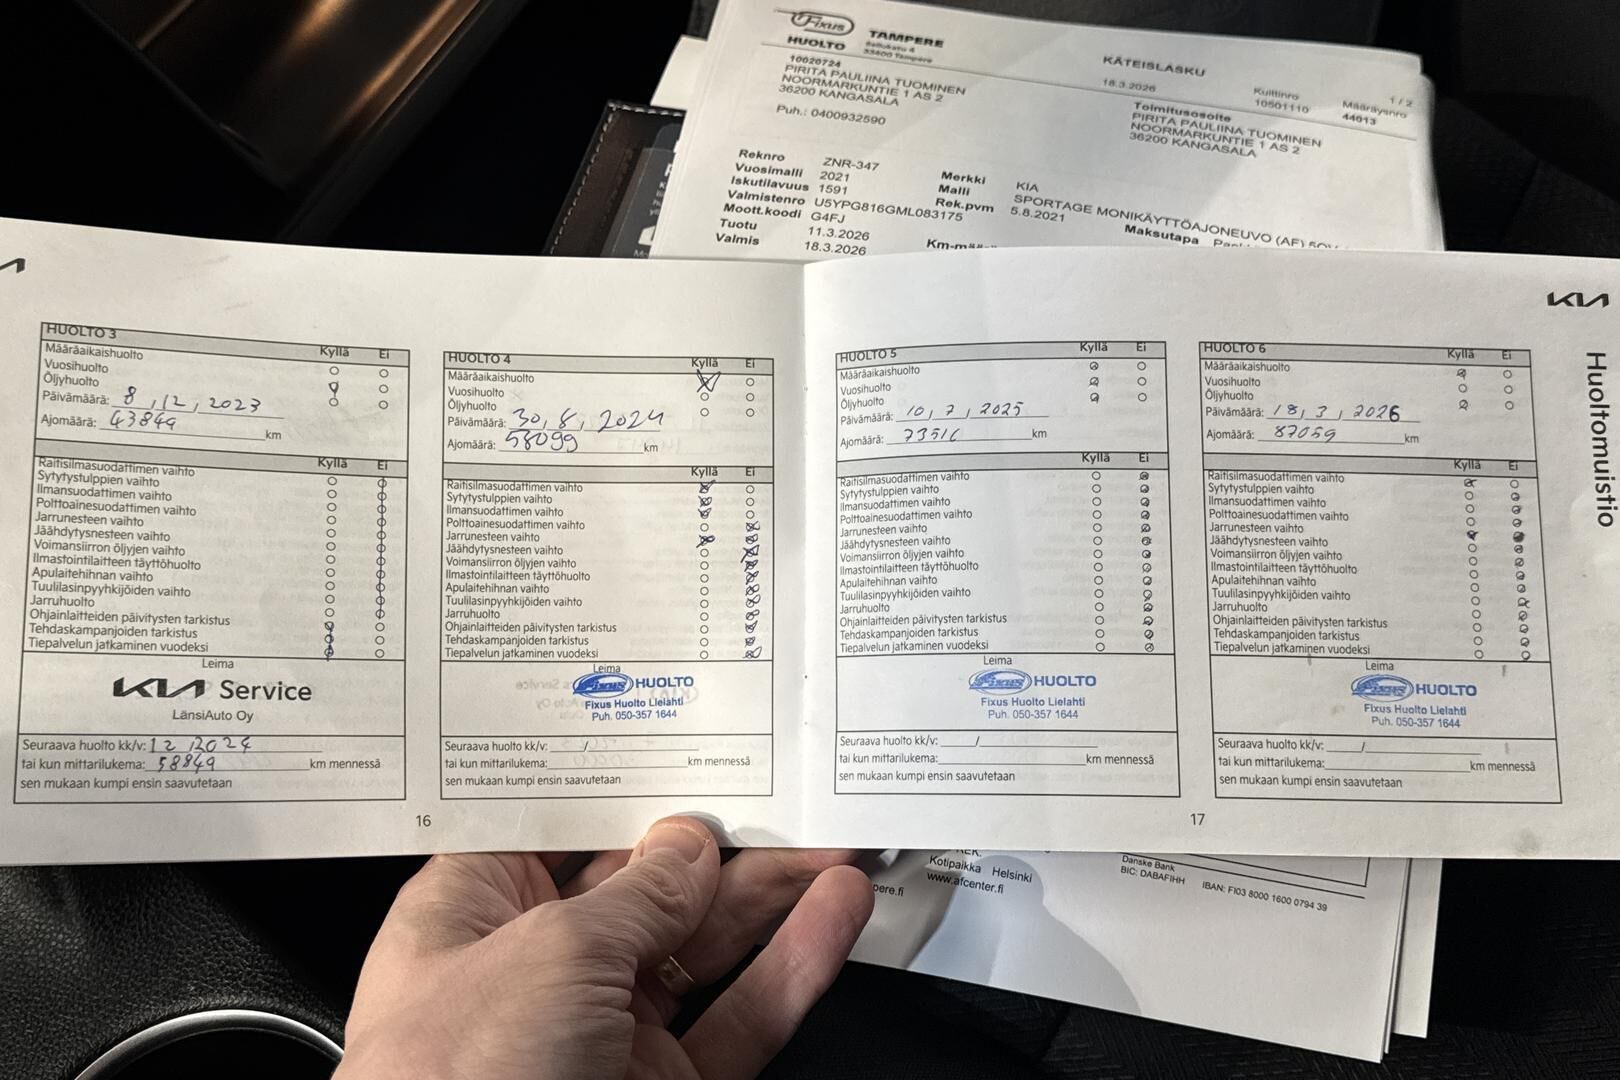 Fixus
HUOLTO
TAMPERE
33400 Tampere
KÄTEISLASKU
18.3.2026
Kuittinro
10501110
1 / 2
Määräysnro
44013
10020724
PIRITA PAULIINA TUOMINEN
NOORMARKUNTIE 1 AS 2
36200 KANGASALA
Puh.: 0400932590
Toimitusosoite
PIRITA PAULIINA TUOMINEN
NOORMARKUNTIE 1 AS 2
36200 KANGASALA
Reknro ZNR-347
Vuosimalli 2021
Iskutilavuus 1591
Valmistenro U5YPG816GML083175
Moott.koodi G4FJ
Tuotu 11.3.2026
Valmis 18.3.2026
Merkki KIA
Malli SPORTAGE MONIKÄYTTÖAJONEUVO (AF)
Rek.pvm 5.8.2021
Maksutapa
KIA
Huoltomuistio
HUOLTO 3
Kyllä Ei
Määräaikaishuolto
Vuosihuolto
Öljyhuolto
Päivämäärä: 8, 12, 2023
Ajomäärä: 43849 km
Kyllä Ei
Raitisilmasuodattimen vaihto
Sytytystulppien vaihto
Ilmansuodattimen vaihto
Polttoainesuodattimen vaihto
Jarrunesteen vaihto
Jäähdytysnesteen vaihto
Voimansiirron öljyjen vaihto
Ilmastointilaitteen täyttöhuolto
Apulaitehihnan vaihto
Tuulilasinpyyhkijöiden vaihto
Jarruhuolto
Ohjainlaitteiden päivitysten tarkistus
Tehdaskampanjoiden tarkistus
Tiepalvelun jatkaminen vuodeksi
Leima
KIA Service
LänsiAuto Oy
Seuraava huolto kk/v: 12 / 2024
tai kun mittarilukema: 58849 km mennessä
sen mukaan kumpi ensin saavutetaan
HUOLTO 4
Kyllä Ei
Määräaikaishuolto
Vuosihuolto
Öljyhuolto
Päivämäärä: 30, 8, 2024
Ajomäärä: 58099 km
Kyllä Ei
Raitisilmasuodattimen vaihto
Sytytystulppien vaihto
Ilmansuodattimen vaihto
Polttoainesuodattimen vaihto
Jarrunesteen vaihto
Jäähdytysnesteen vaihto
Voimansiirron öljyjen vaihto
Ilmastointilaitteen täyttöhuolto
Apulaitehihnan vaihto
Tuulilasinpyyhkijöiden vaihto
Jarruhuolto
Ohjainlaitteiden päivitysten tarkistus
Tehdaskampanjoiden tarkistus
Tiepalvelun jatkaminen vuodeksi
Leima
Fixus HUOLTO
Fixus Huolto Lielahti
Puh. 050-357 1644
Seuraava huolto kk/v: /
tai kun mittarilukema: km mennessä
sen mukaan kumpi ensin saavutetaan
16
HUOLTO 5
Kyllä Ei
Määräaikaishuolto
Vuosihuolto
Öljyhuolto
Päivämäärä: 10, 7, 2025
Ajomäärä: 73516 km
Kyllä Ei
Raitisilmasuodattimen vaihto
Sytytystulppien vaihto
Ilmansuodattimen vaihto
Polttoainesuodattimen vaihto
Jarrunesteen vaihto
Jäähdytysnesteen vaihto
Voimansiirron öljyjen vaihto
Ilmastointilaitteen täyttöhuolto
Apulaitehihnan vaihto
Tuulilasinpyyhkijöiden vaihto
Jarruhuolto
Ohjainlaitteiden päivitysten tarkistus
Tehdaskampanjoiden tarkistus
Tiepalvelun jatkaminen vuodeksi
Leima
Fixus HUOLTO
Fixus Huolto Lielahti
Puh. 050-357 1644
Seuraava huolto kk/v: /
tai kun mittarilukema: km mennessä
sen mukaan kumpi ensin saavutetaan
HUOLTO 6
Kyllä Ei
Määräaikaishuolto
Vuosihuolto
Öljyhuolto
Päivämäärä: 18, 3, 2026
Ajomäärä: 87059 km
Kyllä Ei
Raitisilmasuodattimen vaihto
Sytytystulppien vaihto
Ilmansuodattimen vaihto
Polttoainesuodattimen vaihto
Jarrunesteen vaihto
Jäähdytysnesteen vaihto
Voimansiirron öljyjen vaihto
Ilmastointilaitteen täyttöhuolto
Apulaitehihnan vaihto
Tuulilasinpyyhkijöiden vaihto
Jarruhuolto
Ohjainlaitteiden päivitysten tarkistus
Tehdaskampanjoiden tarkistus
Tiepalvelun jatkaminen vuodeksi
Leima
Fixus HUOLTO
Fixus Huolto Lielahti
Puh. 050-357 1644
Seuraava huolto kk/v: /
tai kun mittarilukema: km mennessä
sen mukaan kumpi ensin saavutetaan
17
pere.fi
Kotipaikka Helsinki
www.afcenter.fi
Danske Bank
BIC: DABAFIHH IBAN: FI03 8000 1600 0794 39